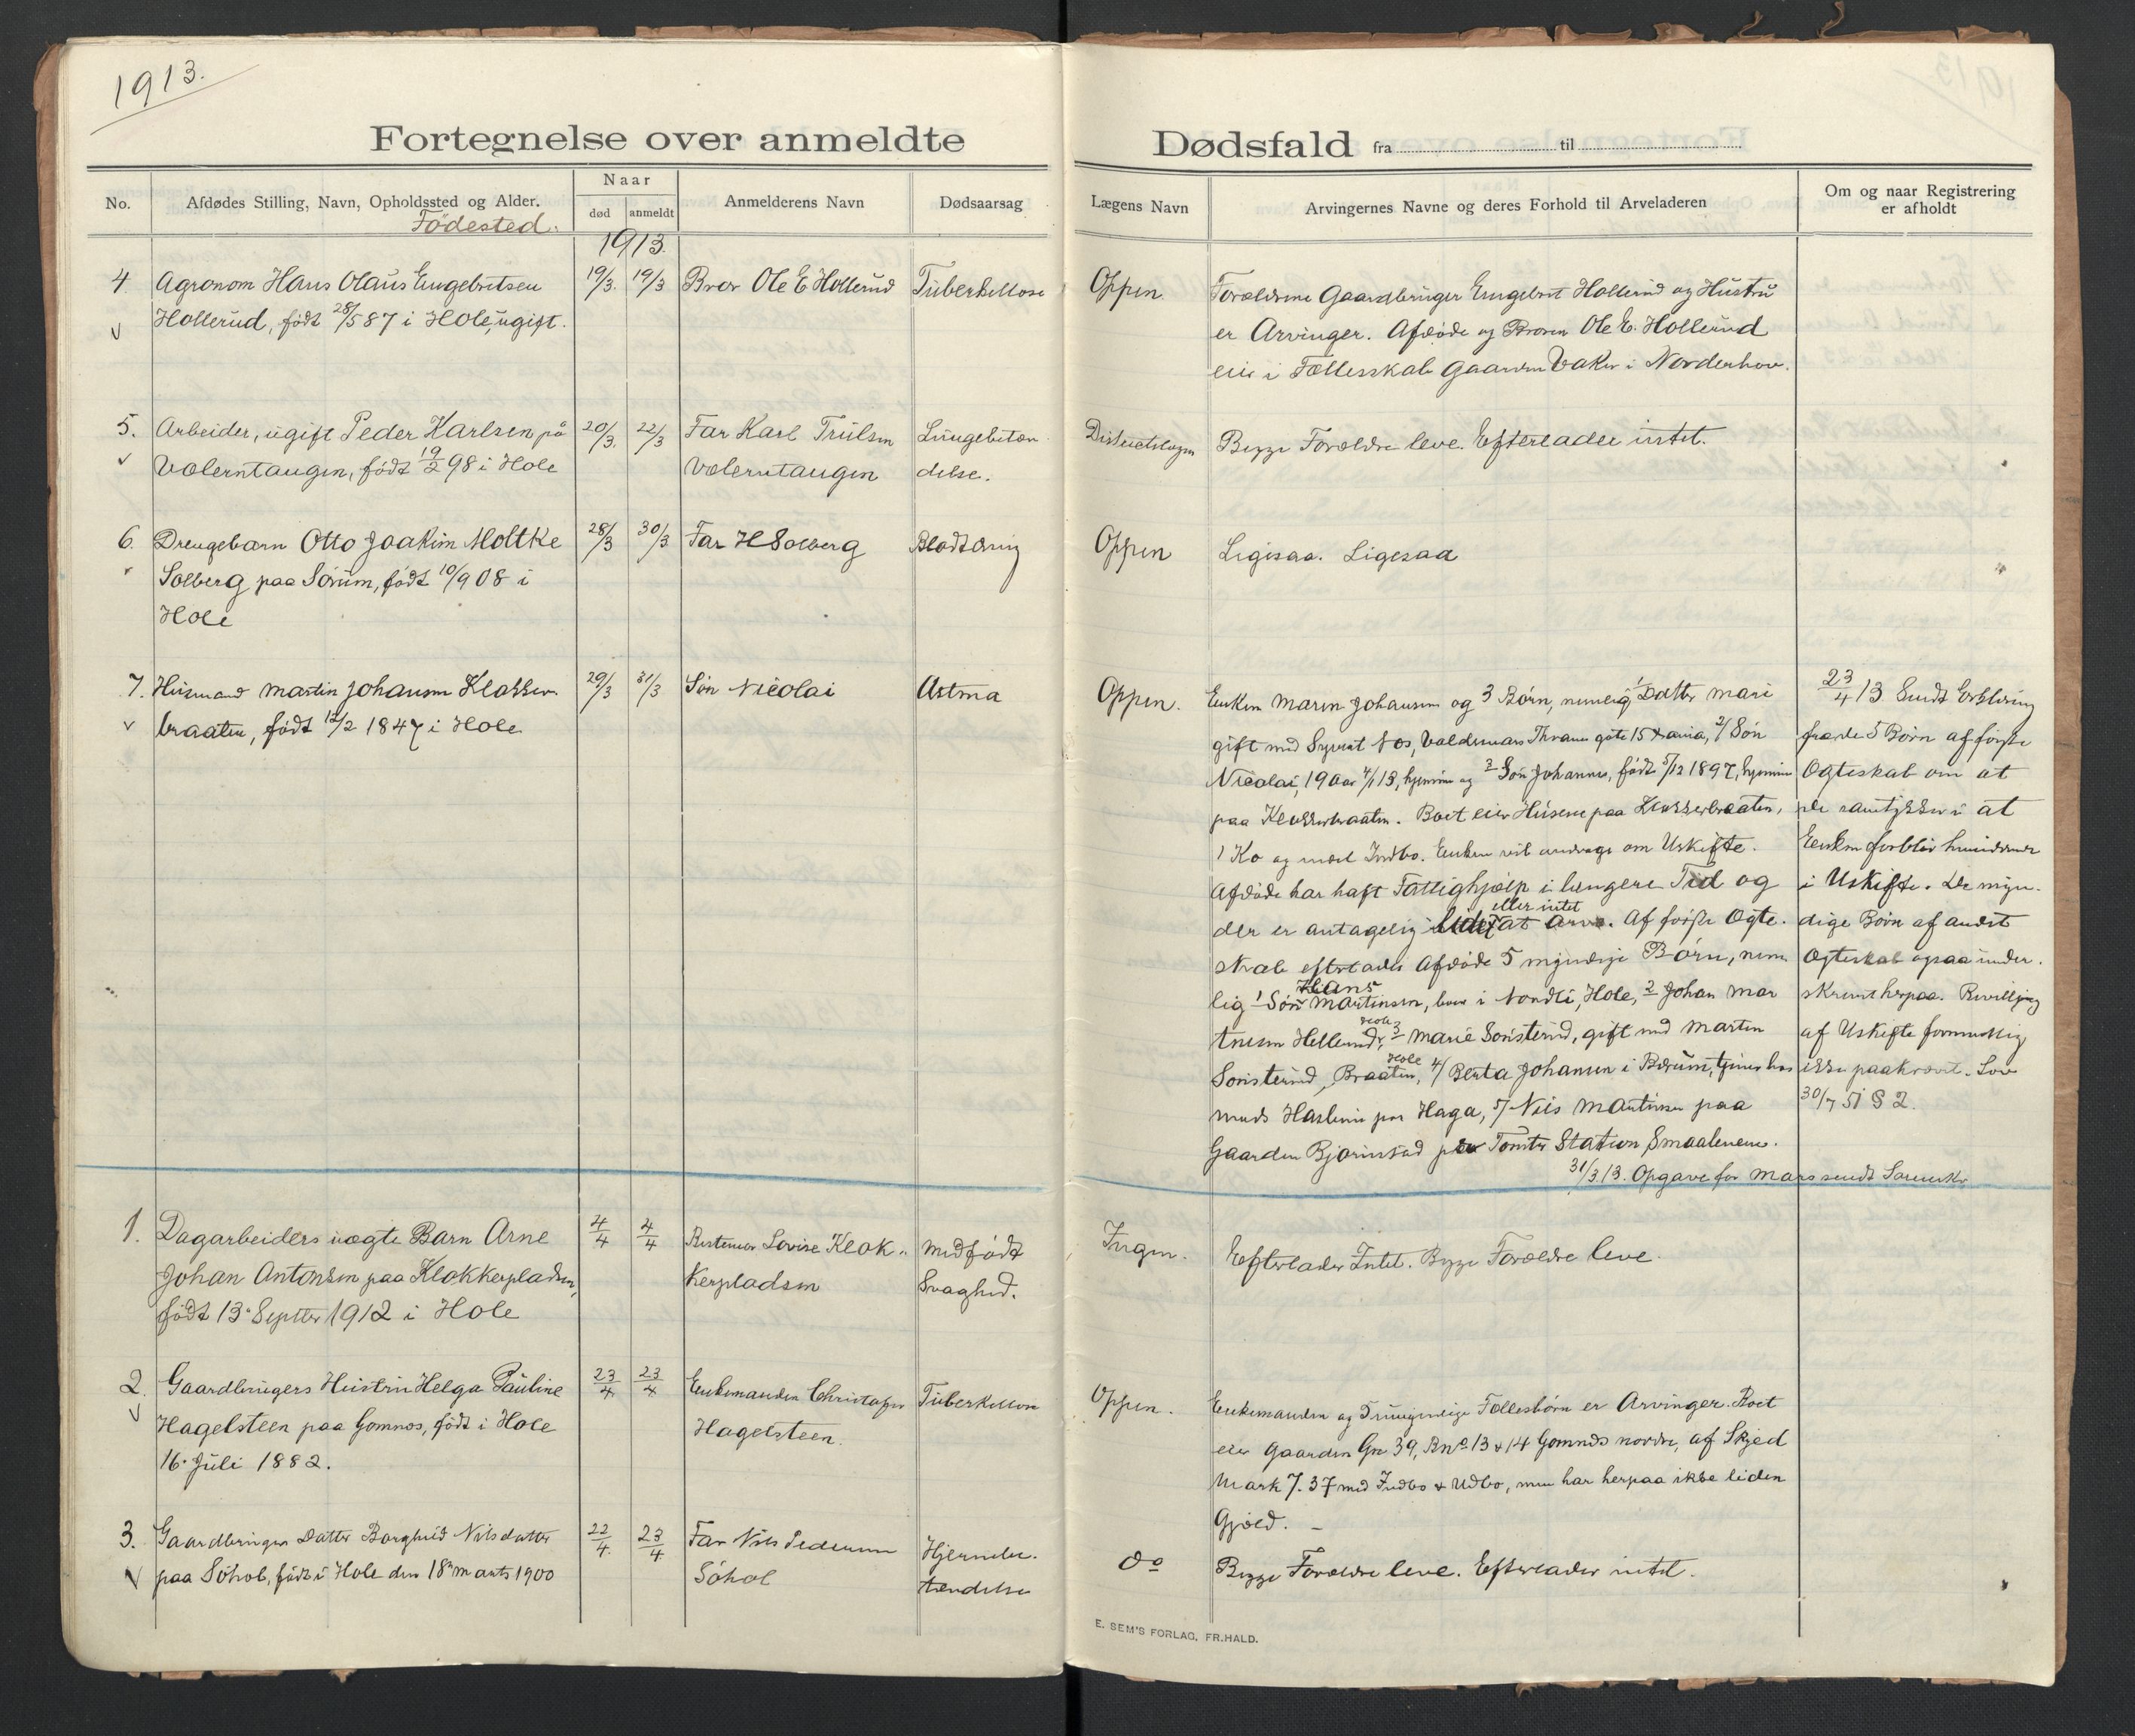 1913.
Fortegnelse over anmeldte
No.
Afdødes Stilling, Navn, Opholdssted og Alder.
Födested.
Naar
død
anmeldt
Anmelderens Navn
Dødsaarsag
1913.
4
Agronom Hans Olaus Engebretsen
19/3.
19/3
Bror Ole E Hollerud
Tuberkellose
Hollerud, født 28/5 87 i Hole, ugift.
5.
Arbeider, ugift Peder Karlsen på
20/3.
22/3
Far Karl Trulsen
Lungebetæn
Vælerntangen, født 19/2 98 i Hole
Vælerntangen
delse.
6.
Drengebarn Otto Joakim Moltke
28/3
30/3
Far H Solberg
Blodtæring
Solberg paa Sörum, født 10/9 08 i
Hole
7.
Husmand Martin Johansen Klokker
29/3
31/3
Søn Nicolai
Astma
braaten, født 12/2 1847 i Hole
1.
Dagarbeiders uægte Barn Arne
4/4
4/4
Bestemor Lovise Klok-
Medfødt
Johan Antonsen paa Klokkerpladsen,
kerpladsen
Svaghed.
født 13 Septter 1912 i Hole
2.
Gaardbrugers Hustru Helga Pauline
23/4
23/4
Enkemanden Christoffer
Tuberkellose
Hagelsteen paa Gomnes, født i Hole
Hagelsteen.
16. Juli 1882.
3.
Gaardbruger Datter Borghild Nilsdatter
22/4.
23/4
Far Nils Pedersen
Hjernebe-
paa Söhol, født i Hole den 18de Marts 1900
Söhol
tændelse
Dødsfald fra til
Lægens Navn
Arvingernes Navne og deres Forhold til Arveladeren
Om og naar Registrering
er afholdt
Oppen
Forældrene Gaardbruger Engebret Hollerud og Hustru
er Arvinger. Afdøde og Broren Ole E. Hollerud
eier i Fællesskab Gaarden Vaker i Norderhov.
Distriktslægen
Begge Forældre leve. Efterlader intet.
Oppen
Ligesaa. Ligesaa
Oppen.
Enken Maren Johansen og 3 Børn, nemlig 1 Datter Mari
gift med Syvert Næs, Valdemar Thranes gate 15 Krania, 2/ Søn
Nicolai, 19 Aar 4/1 13, hjemme og 3 Søn Johannes, født 5/12 1897, hjemme
paa Klokkerbraaten. Boet eier Husene paa Klokkerbraaten,
1 Ko og med Indbo. Enken vil andrage om Uskifte.
Afdøde har haft Fattighjælp i længere Tid og
der er antagelig lidet eller intet at arve. Af første Ægte-
skab efterlader Afdøde 5 myndige Børn, nem
lig 1 Søn Hans Martinsen, bor i Nordli, Hole, 2 Johan Mar
tinsen Hellerud, Hole 3 Marie Sonsterud, gift med Martin
Sonsterud, Braaten, Hole 4/ Berta Johansen i Bærum, tjener hos
Mads Haslum paa Haga, 5/ Nils Martinsen paa
Gaarden Bjørnstad pr Tomter Station Smaalenene.
31/3 13. Opgave for Mars sendt Sorensk
23/4 13 Sendt Erklæring
fra de 5 Børn af første
Ægteskab om at
de samtykker i at
Enken forbliver hensiddende
i Uskifte. De myn-
dige Børn af andet
Ægteskab ogsaa under-
skrevet herpaa. Bevilling
af Uskifte formentlig
ikke paakrævet. Lov
30/7 51 § 2.
Ingen.
Efterlader Intet. Begge Forældre leve.
Oppen.
Enkemanden og 3 umyndige Fællesbørn er Arvinger. Boet
eier Gaarden Gn 39, Bno 13 & 14 Gomnes nordre, af Skjed
Mark 7.37 med Indbo & Udbo, men har herpaa ikke liden
Gjæld. –
Do
Begge Forældre leve. Efterlader intet.
E. SEM'S FORLAG, FR.HALD.